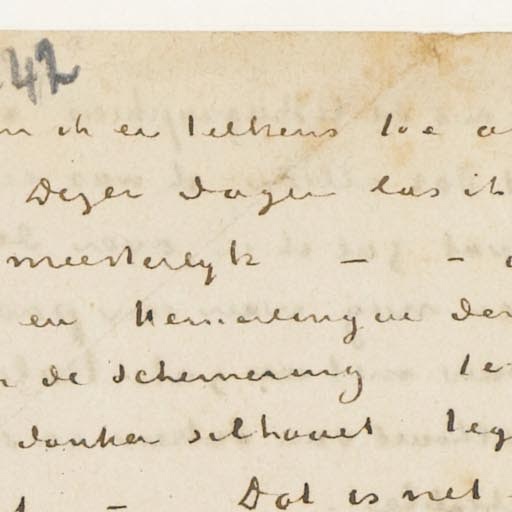 42
ik er telkens toe
Dezer dagen las ik
meesterlyk — —
en Hemerlingue der
de schemering te
donker silhouet teg
— Dat is net